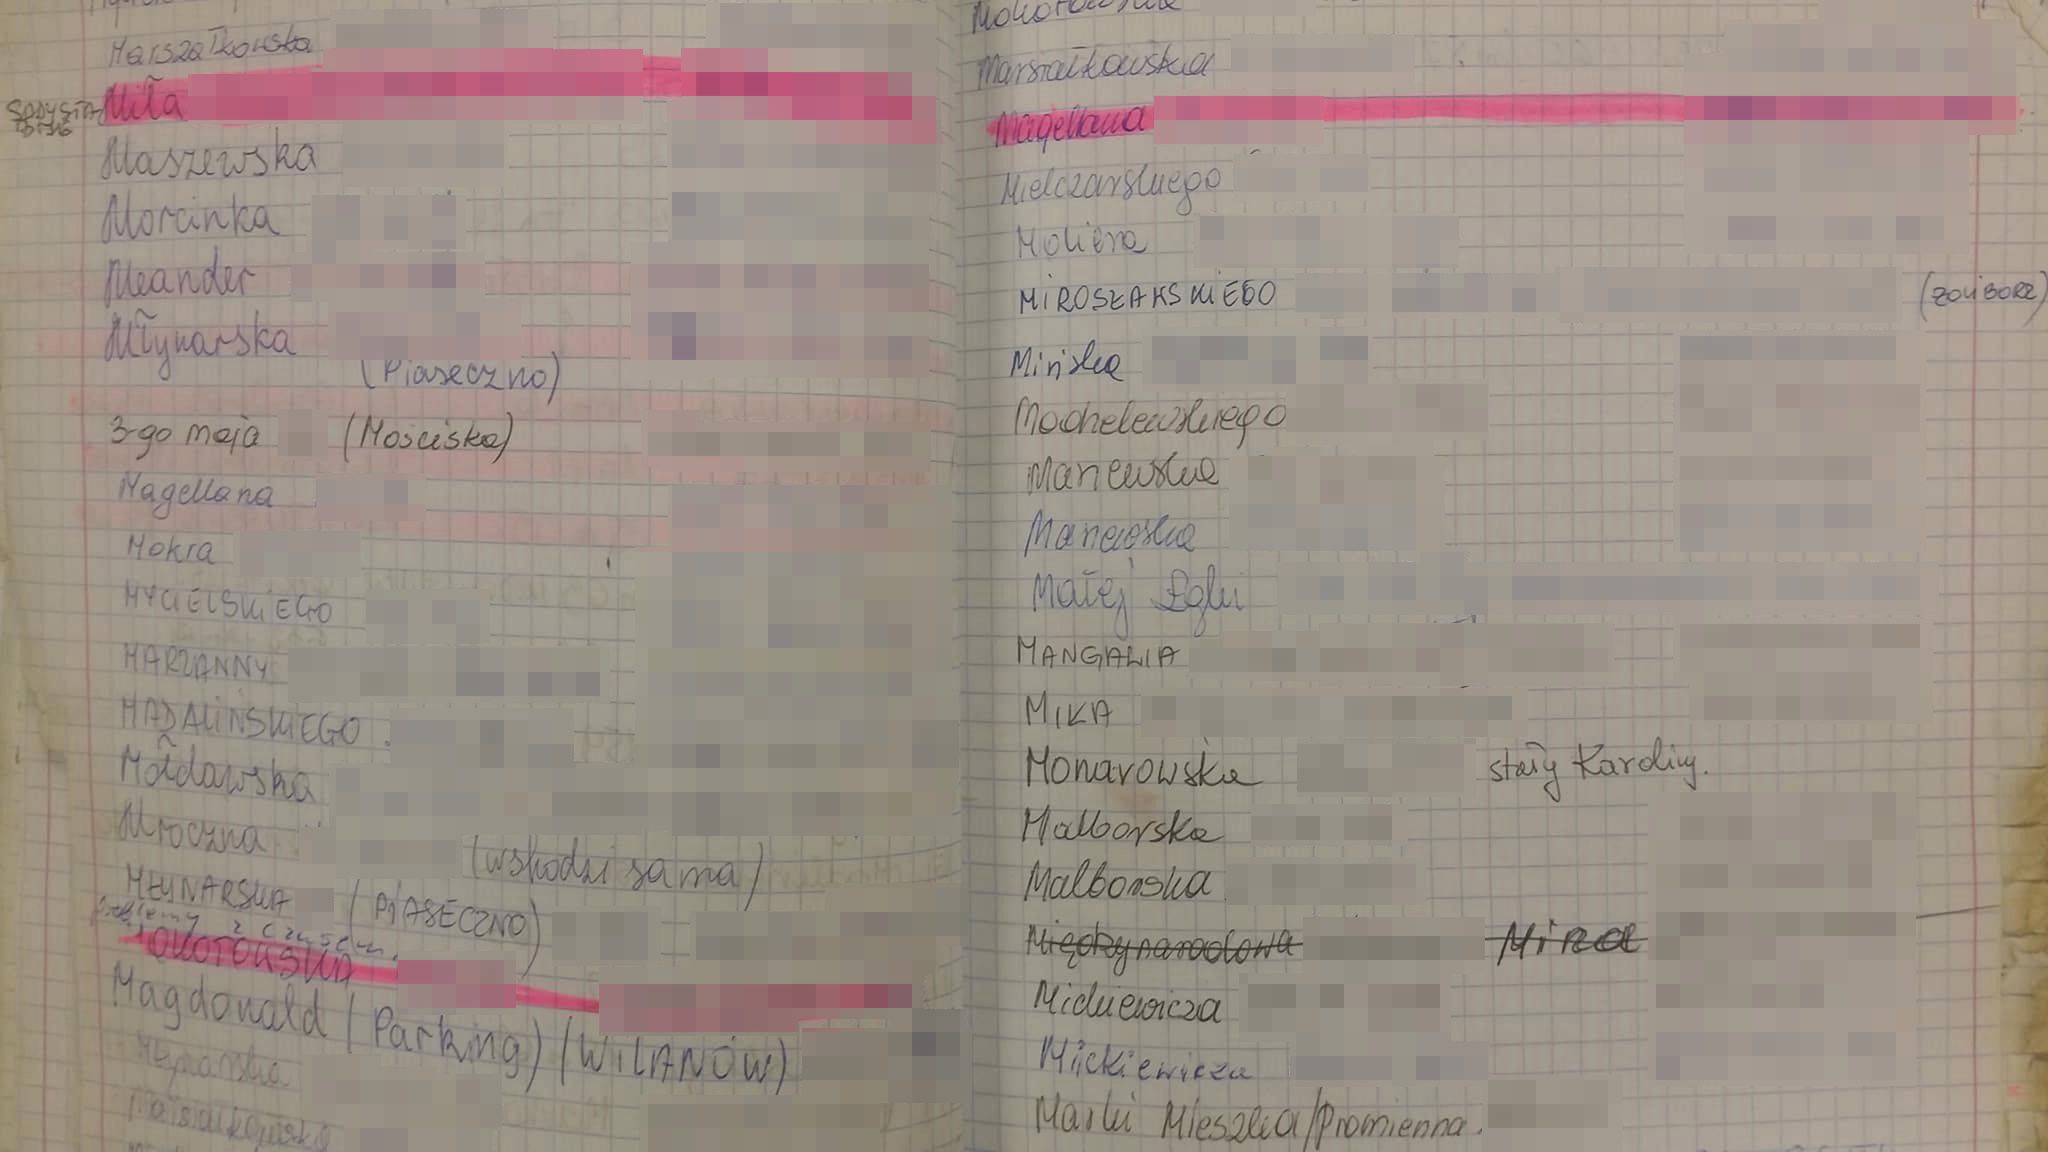 Marszałkowska
SADYSTA
Miła
Maszewska
Morcinka
Meander
Młynarska
(Piaseczno)
3-go maja (Mościska)
Magellana
Mokra
MYCIELSKIEGO
MARZANNY
MADALIŃSKIEGO
Mołdawska
Mroczna (wshodzi sama)
MŁYNARSKA (PIASECZNO)
problemy z czasem.
MOKOTOWSKA
Magdonald (Parking) (WILANÓW)
Młynarska
Marszałkowska
Mokotowska
Marszałkowska
Magellana
Mielczarskiego
Moliera
MIROSZAKSKIEGO (ŻOLIBORZ)
Mińska
Mochelewskiego
Manewska
Manewska
Małej Łąki
MANGALIA
MIKA
Monarowska stały Karoliny.
Malborska
Malborska
Międzynarodowa Mira
Mickiewicza
Mickiewicza
Marki Mieszka/Promienna.